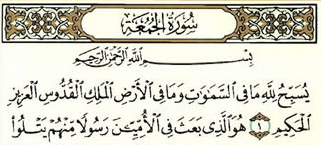 سُورَةُ الْجُمُعَةِ
بِسْمِ اللَّهِ الرَّحْمَٰنِ الرَّحِيمِ
يُسَبِّحُ لِلَّهِ مَا فِي السَّمَٰوَٰتِ وَمَا فِي الْأَرْضِ الْمَلِكِ الْقُدُّوسِ الْعَزِيزِ
الْحَكِيمِ ١ هُوَ الَّذِي بَعَثَ فِي الْأُمِّيِّينَ رَسُولًا مِنْهُمْ يَتْلُوا